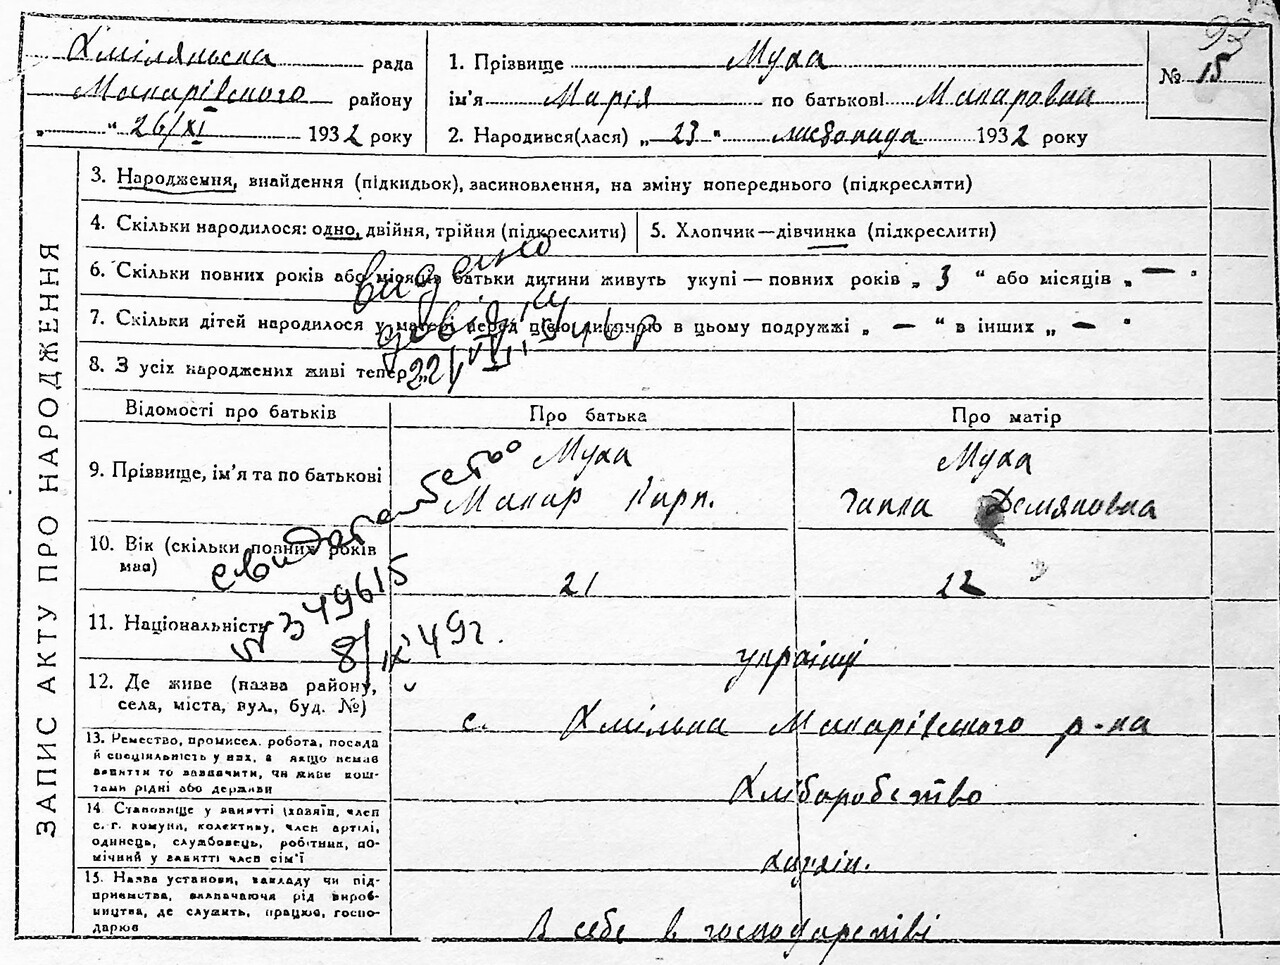 93
Хмілянська рада
Макарівського району
„ “ 26/XI 1932 року
1. Прізвище Муха
ім'я Марія по батькові Макаровна
2. Народився(лася) „ 23 “ листопада 1932 року
№ 15
ЗАПИС АКТУ ПРО НАРОДЖЕННЯ
3. Народження, знайдення (підкидьок), засиновлення, на зміну попереднього (підкреслити)
4. Скільки народилося: одно, двійня, трійня (підкреслити)
5. Хлопчик—дівчинка (підкреслити)
6. Скільки повних років або місяців батьки дитини живуть укупі—повних років „ 3 “ або місяців „ — “
7. Скільки дітей народилося у матері перед цією дитиною в цьому подружжі „ — “ в інших „ — “
8. З усіх народжених живі тепер
видано
довідку
22/VIII 1946 р
Відомості про батьків
Про батька
Про матір
9. Прізвище, ім'я та по батькові
Муха
Макар Карп.
Муха
Ганна Демяновна
10. Вік (скільки повних років
має)
21
22
свидетельство
№ 349615
8/IX 49г.
11. Національність
українці
12. Де живе (назва району,
села, міста, вул., буд. №)
с. Хмільна Макарівського р-на
13. Ремество, промисел, робота, посада
й спеціяльність у них, а якщо немає
заняття то зазначити, чи живе кош-
тами рідні або держави
Хліборобство
14. Становище у занятті (хазяїн, член
с.-г. комуни, колективу, член артілі,
одинець, службовець, робітник, по-
мічний у занятті член сім'ї
хазяїн.
15. Назва установи, закладу чи під-
приємства, визначаючи рід вироб-
ництва, де служить, працює, госпо-
дарює
В себе в господарстві